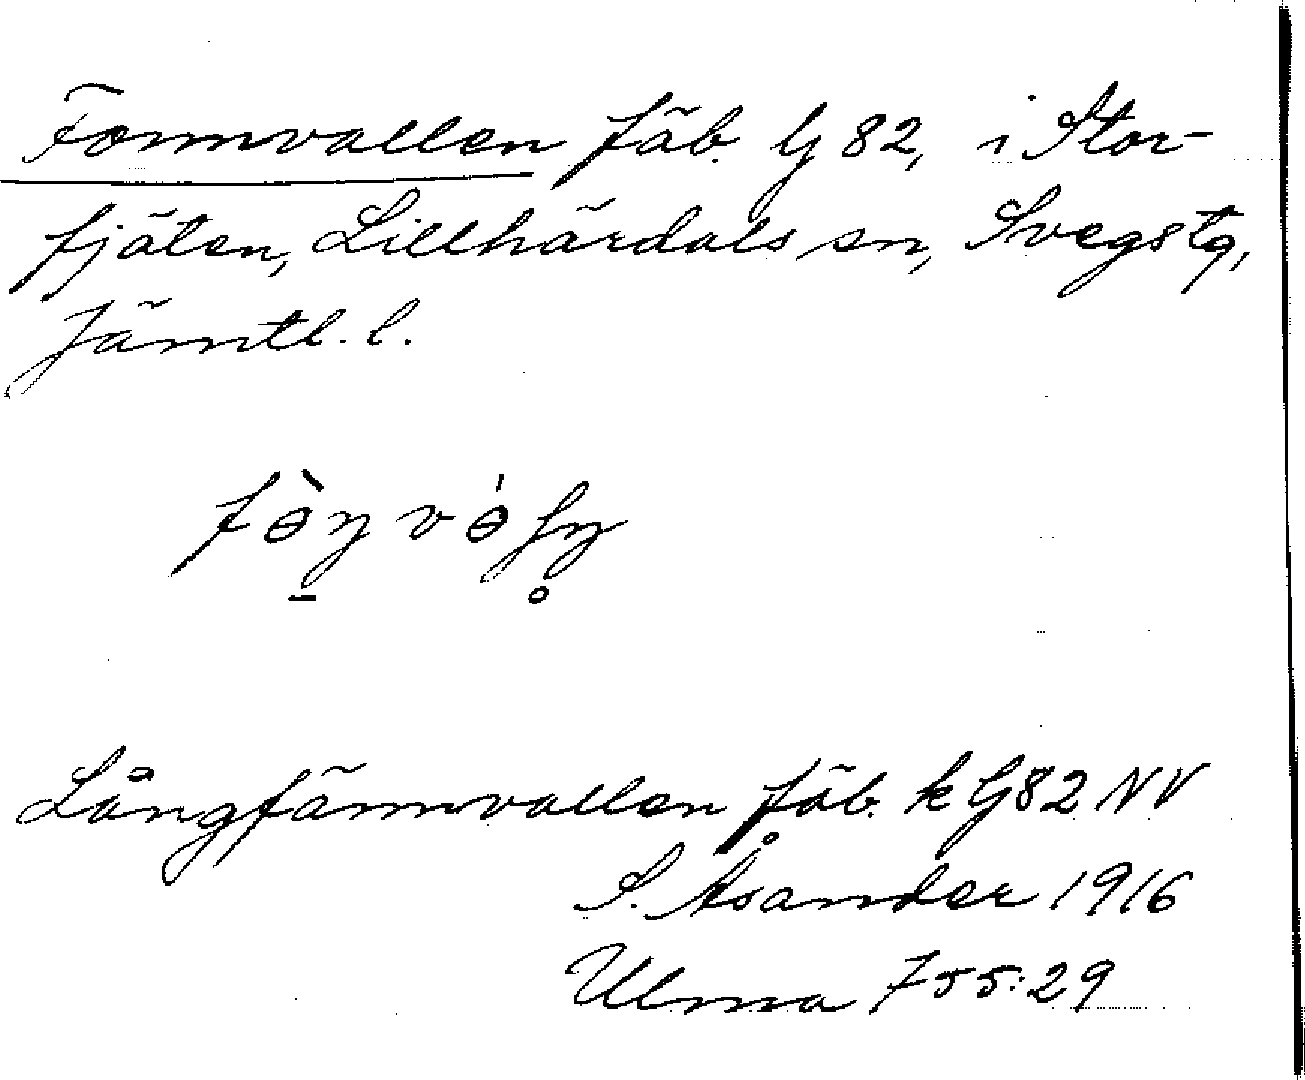 Formvallen fäb. G 82, i Stor-
fjäten, Lillhärdals sn, Svegs tg,
Jämtl. l.
Långfämvallen fäb. k G82 NV
S. Åsander 1916
Ulma 755:29